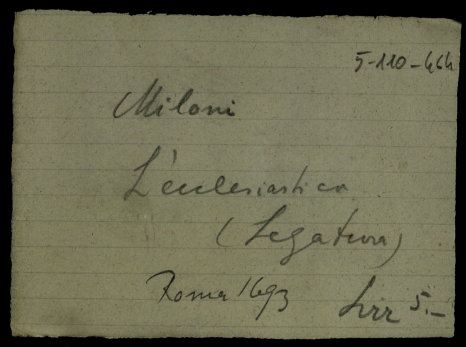 5-110-464
Miloni
L'ecclesiastica
(Legatura)
Roma 1693
Lire 5.-